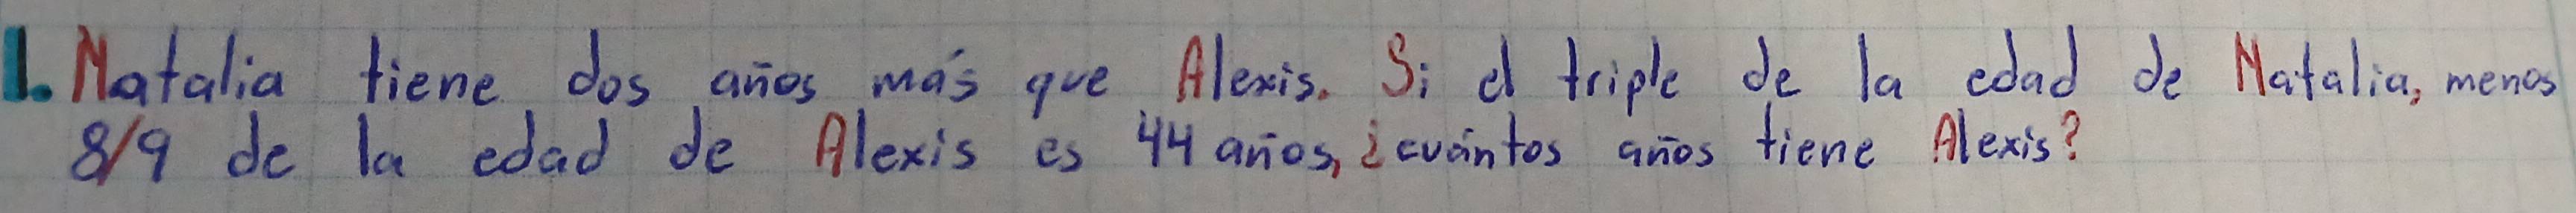 1. Natalia tiene dos años más que Alexis. Si el triple de la edad de Natalia, menos
8/9 de la edad de Alexis es 44 años, ¿cuántos años tiene Alexis?